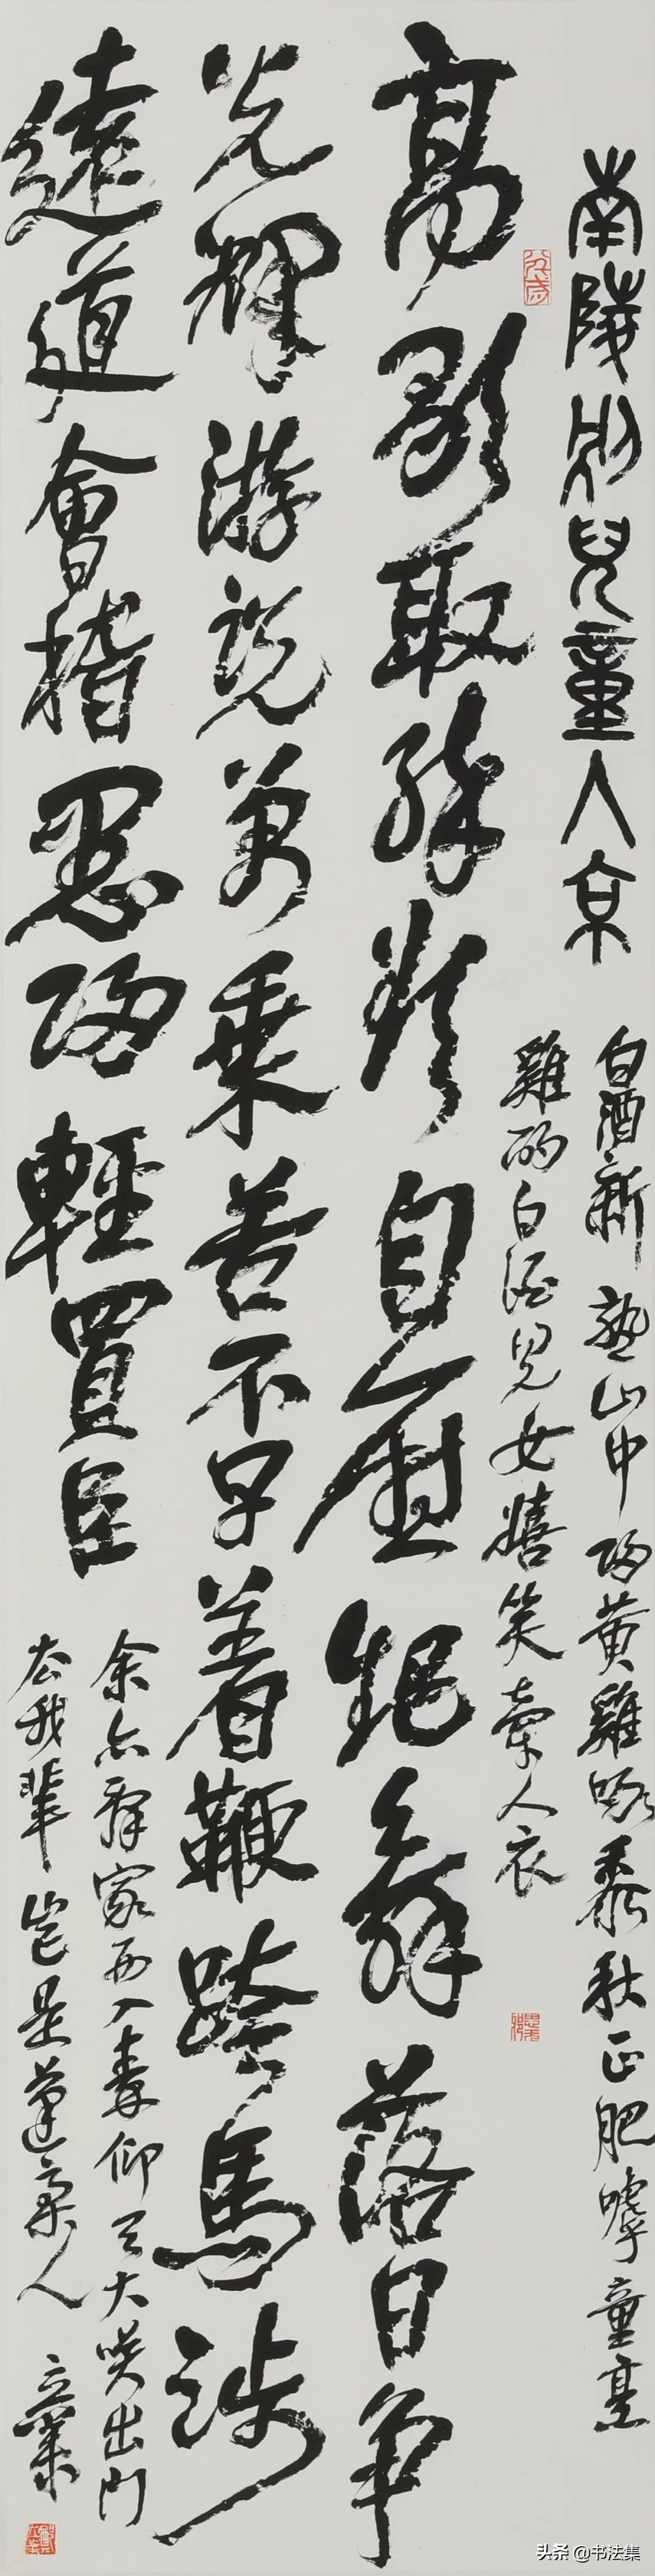 南陵別兒童入京
白酒新熟山中歸黃雞啄黍秋正肥呼童烹
雞酌白酒兒女嬉笑牽人衣
高歌取醉欲自慰起舞落日爭
光輝游說萬乘苦不早著鞭跨馬涉
遠道會稽愚婦輕買臣
余亦辭家西入秦仰天大笑出門
去我輩豈是蓬蒿人
頭条 @书法集